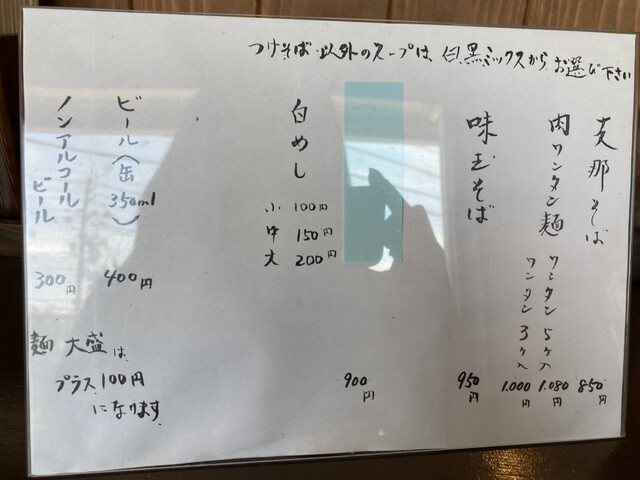 つけそば以外のスープは、白、黒、ミックスからお選び下さい
支那そば 850円
肉ワンタン麺 ワンタン5ケ入 1.080円
ワンタン3ケ入 1.000円
味玉そば 950円
900円
白めし
小 100円
中 150円
大 200円
ビール(缶350ml) 400円
ノンアルコールビール 300円
麺大盛は、
プラス100円
になります